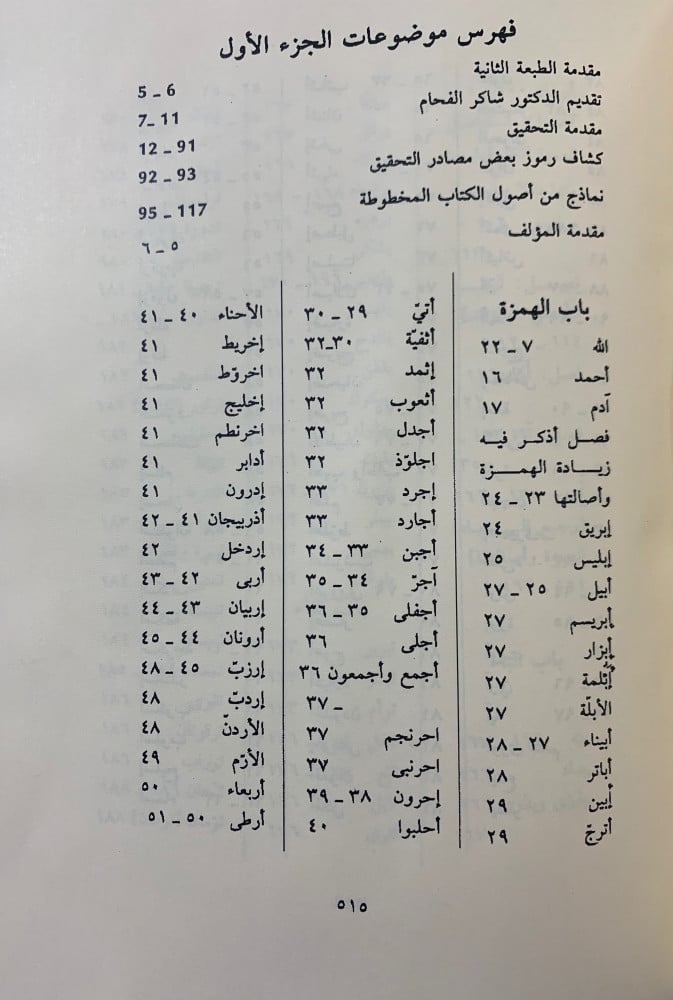 فهرس موضوعات الجزء الأول
مقدمة الطبعة الثانية
تقديم الدكتور شاكر الفحام 5 ـ 6
مقدمة التحقيق 7ـ 11
كشاف رموز بعض مصادر التحقيق 12 ـ 91
نماذج من أصول الكتاب المخطوطة 92 ـ 93
مقدمة المؤلف 95 ـ 117
٥ ـ ٦
باب الهمزة
الله ٧ ـ ٢٢
أحمد ١٦
آدم ١٧
فصل أذكر فيه
زيادة الهمزة
وأصالتها ٢٣ ـ ٢٤
إبريق ٢٤
إبليس ٢٥
أبيل ٢٥ ـ ٢٧
أبريسم ٢٧
إبزار ٢٧
أبلمة ٢٧
الأبلّة ٢٧
أبيناء ٢٧ ـ ٢٨
أباتر ٢٨
إبين ٢٩
أترجّ ٢٩
أتيّ ٢٩ ـ ٣٠
أثفيّة ٣٠ـ٣٢
إثمد ٣٢
أثعوب ٣٢
أجدل ٣٢
اجلوّذ ٣٢
إجرد ٣٣
أجارد ٣٣
أجبن ٣٣ ـ ٣٤
آجرّ ٣٤ ـ ٣٥
أجفلى ٣٥ ـ ٣٦
أجلى ٣٦
أجمع وأجمعون ٣٦
ـ ٣٧
احرنجم ٣٧
احرنبى ٣٧
إحرون ٣٨ ـ ٣٩
أحلبوا ٤٠
الأحناء ٤٠ ـ ٤١
إخريط ٤١
اخروّط ٤١
إخليج ٤١
اخرنطم ٤١
أدابر ٤١
إدرون ٤١
أذربيجان ٤١ ـ ٤٢
إردخل ٤٢
أربى ٤٢ ـ ٤٣
إربيان ٤٣ ـ ٤٤
أرونان ٤٤ ـ ٤٥
إرزبّ ٤٥ ـ ٤٨
إردبّ ٤٨
الأردنّ ٤٨
الأرّم ٤٩
أربعاء ٥٠
أرطى ٥٠ ـ ٥١
٥١٥